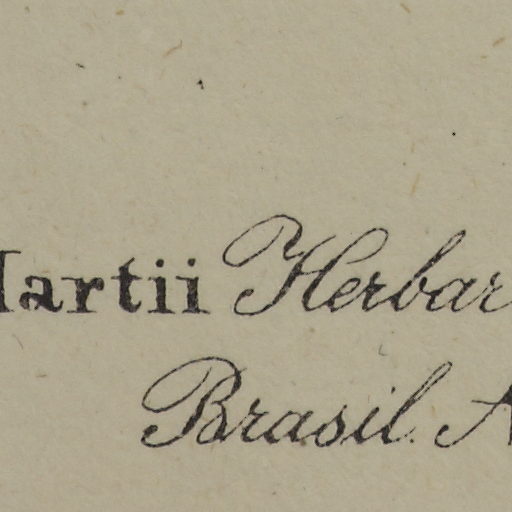 artii Herbar
Brasil.